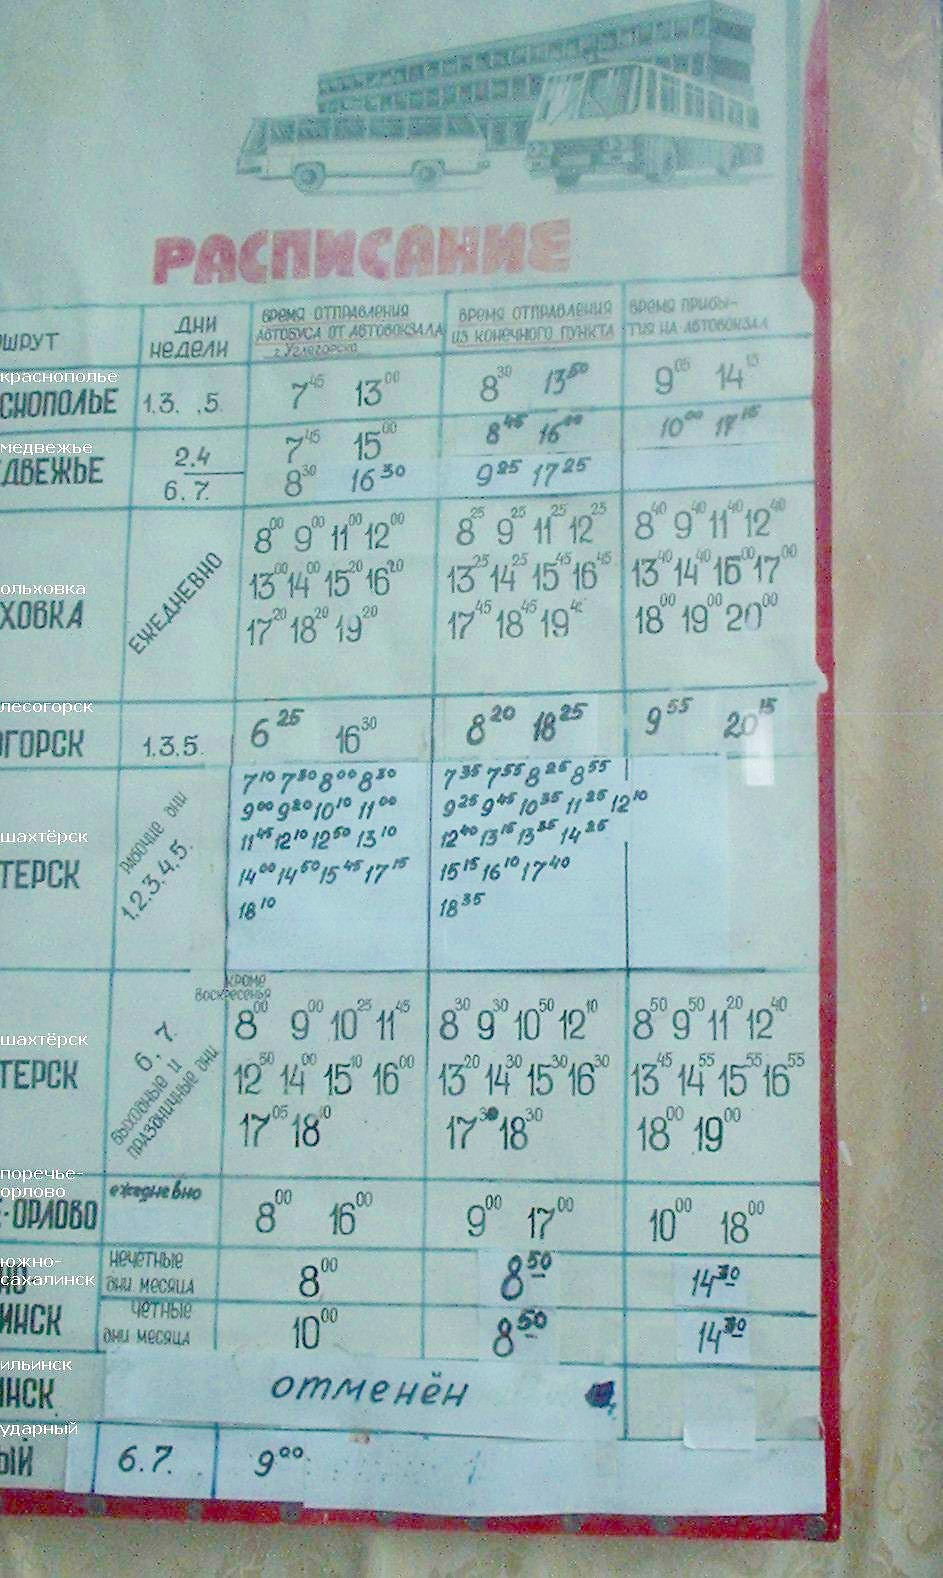 РАСПИСАНИЕ
ШРУТ
ДНИ НЕДЕЛИ
ВРЕМЯ ОТПРАВЛЕНИЯ АВТОБУСА ОТ АВТОВОКЗАЛА г. Углегорска
ВРЕМЯ ОТПРАВЛЕНИЯ ИЗ КОНЕЧНОГО ПУНКТА
ВРЕМЯ ПРИБЫ- ТИЯ НА АВТОВОКЗАЛ
краснополье
СНОПОЛЬЕ 1.3. .5. 7 45 13 00 8 30 13 50 9 05 14 15
медвежье
ДВЕЖЬЕ 2.4 7 45 15 00 8 45 16 00 10 00 17 15
6.7. 8 30 16 30 9 25 17 25
ольховка
ХОВКА ЕЖЕДНЕВНО
8 00 9 00 11 00 12 00 8 25 9 25 11 25 12 25 8 40 9 40 11 40 12 40
13 00 14 00 15 20 16 20 13 25 14 25 15 45 16 45 13 40 14 40 16 00 17 00
17 20 18 20 19 20 17 45 18 45 19 45 18 00 19 00 20 00
лесогорск
ОГОРСК 1.3.5. 6 25 16 30 8 20 18 25 9 55 20 15
шахтёрск
ТЕРСК рабочие дни 1.2.3.4.5.
7 10 7 30 8 00 8 30 7 35 7 55 8 25 8 55
9 00 9 20 10 10 11 00 9 25 9 45 10 35 11 25 12 10
11 45 12 10 12 50 13 10 12 40 13 15 13 35 14 25
14 00 14 50 15 45 17 15 15 15 16 10 17 40
18 10 18 35
шахтёрск
ТЕРСК 6. 7. выходные и праздничные дни
кроме воскресенья
8 00 9 00 10 25 11 45 8 30 9 30 10 50 12 10 8 50 9 50 11 20 12 40
12 50 14 00 15 10 16 00 13 20 14 30 15 30 16 30 13 45 14 55 15 55 16 55
17 05 18 17 30 18 30 18 00 19 00
поречье-
орлово
Е-ОРЛОВО ежедневно 8 00 16 00 9 00 17 00 10 00 18 00
южно-
сахалинск
НО НЕЧЕТНЫЕ ДНИ МЕСЯЦА 8 00 8 50 14 30
ИНСК ЧЕТНЫЕ ДНИ МЕСЯЦА 10 00 8 50 14 30
ильинск
ИНСК отменён
ударный
ЫЙ 6.7. 9 00